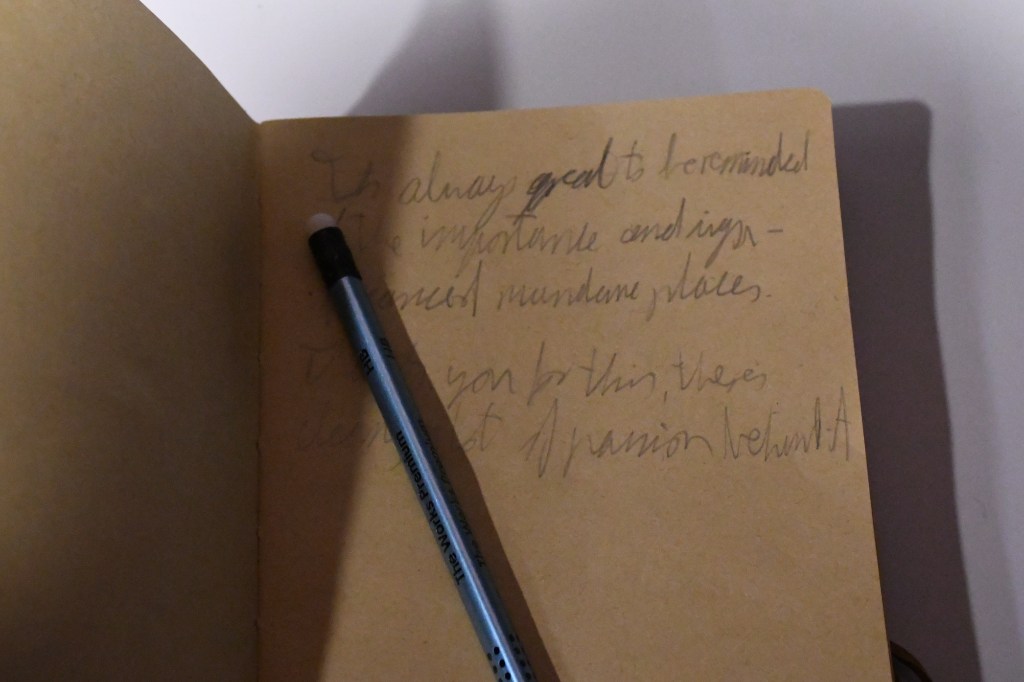 It's always great to be reminded
the importance and sign-
of mundane places.
you for this, there's
of passion behind it
HB
The Works Premium